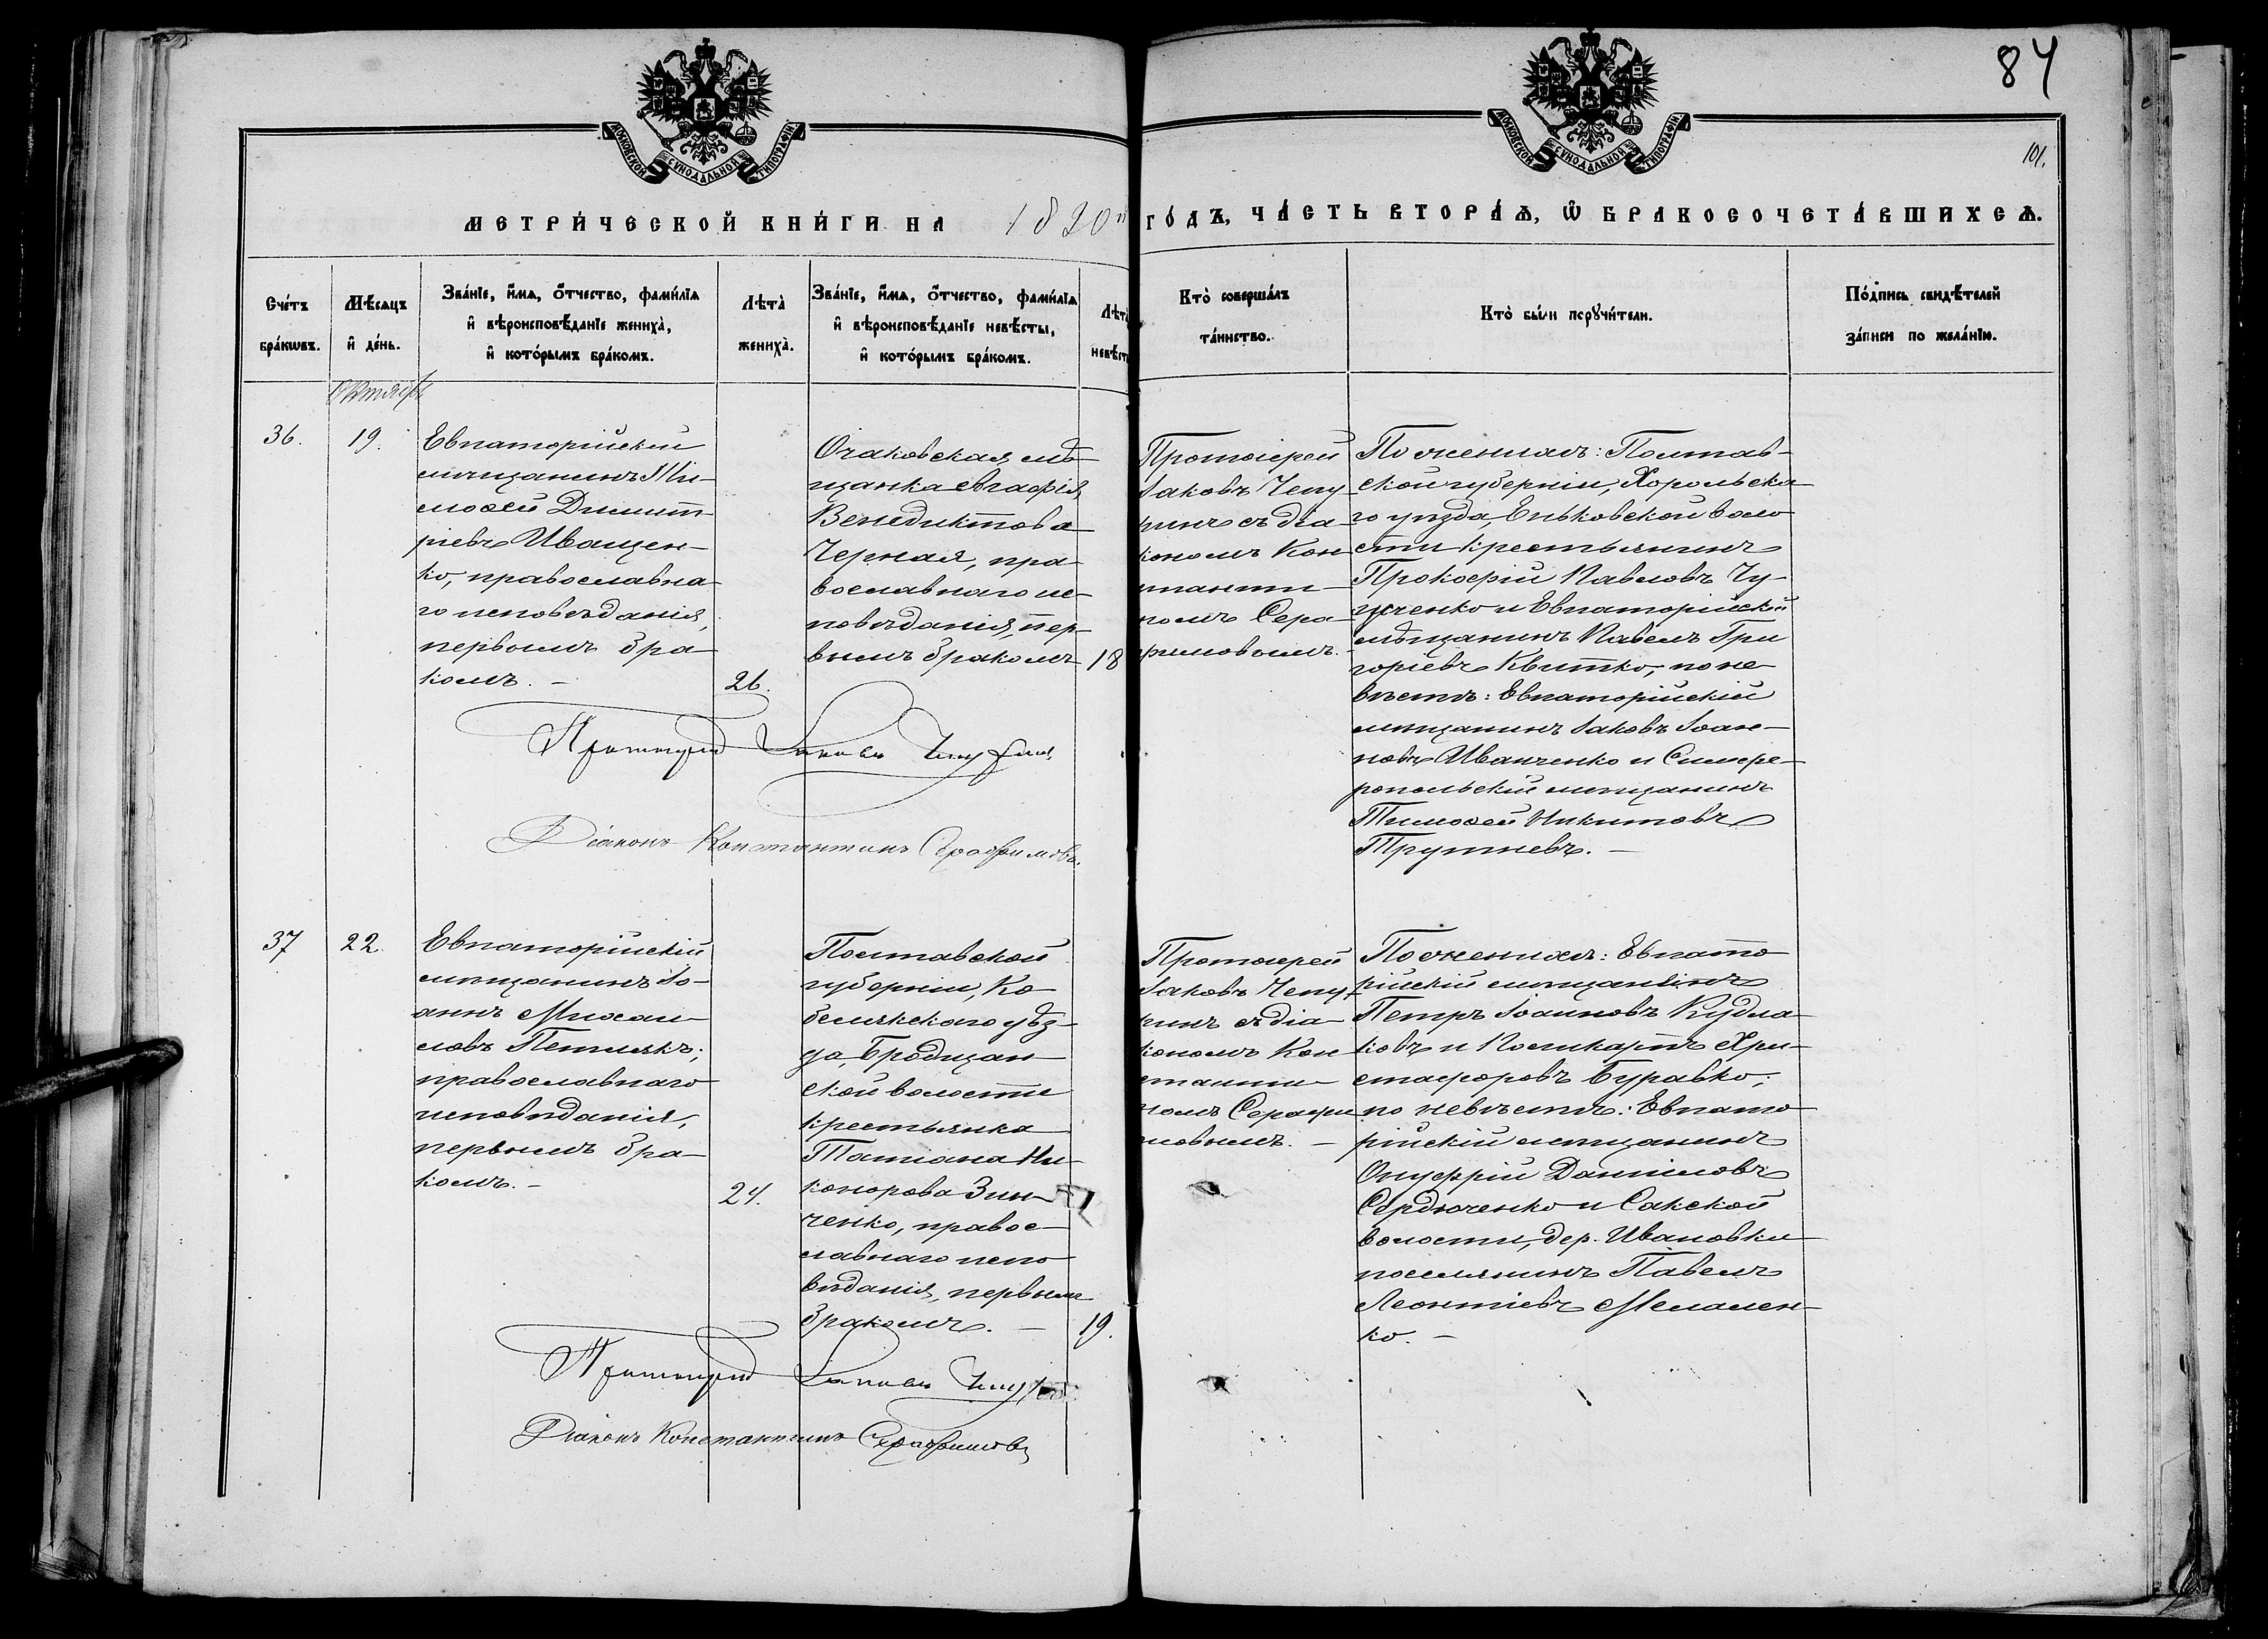 84
101.
МОСКОВСКОЙ СѴНОДАЛЬНОЙ ТИПОГРАФІИ
МОСКОВСКОЙ СѴНОДАЛЬНОЙ ТИПОГРАФІИ
МЕТРИ́ЧЕСКОЙ КНИ́ГИ НА 1890й
ГО́ДЪ, ЧА́СТЬ ВТОРА́Ѧ, Ѽ БРАКОСОЧЕТА́ВШИХСѦ.
Сче́тъ
бра́кѡвъ.
Мѣ́сѧцъ
и҆ де́нь.
Зва́нїе, и҆́мѧ, о҆́тчество, фами́лїѧ
и҆ вѣроисповѣ́данїе жениха̀,
и҆ кото́рымъ бра́комъ.
Лѣта̀
жениха̀.
Зва́нїе, и҆́мѧ, о҆́тчество, фами́лїѧ
и҆ вѣроисповѣ́данїе невѣ́сты,
и҆ кото́рымъ бра́комъ.
Лѣта
невѣст
Кто̀ соверша́лъ
та́инство.
Кто̀ бы́ли порꙋчи́тели.
По́дпись свидѣ́телей
за́писи по жела́нїю.
Октябрь
36.
19.
Евпаторійскій
мѣщанинъ Ти-
моѳей Димит-
ріевъ Иващен-
ко, православна-
го исповѣданія,
первымъ бра-
комъ. –
26.
Очаковская мѣ-
щанка Агафія
Венедиктова
Черная, пра-
вославнаго ис-
повѣданія, пер-
вымъ бракомъ
18
Протоіерей
Іаковъ Чепу
ринъ съ діа-
кономъ Кон
станти-
номъ Сера-
фимовымъ.
По женихѣ: Полтав-
ской губерніи, Хорольска-
го уѣзда, Еньковской воло
сти крестьянинъ
Прокофій Павловъ Чу-
ченко и Евпаторійскій
мѣщанинъ Павелъ Гри
горіевъ Квитко; по не-
вѣстѣ: Евпаторійскій
мѣщанинъ Іаковъ Іоан-
новъ Иванченко и Симфе-
ропольскій мѣщанинъ
Тимоѳей Никитовъ
Трутневъ. –
Протоіерей Іаковъ Чепуринъ
Діаконъ Константинъ Серафимовъ.
37
22.
Евпаторійскій
мѣщанинъ Іо-
аннъ Михаи
ловъ Петлякъ;
православнаго
исповѣданія,
первымъ бра-
комъ. –
24.
Полтавской
губерніи, Ко
белякскаго уѣз-
да, Бродщан
ской волости
крестьянка
Татіана Ни-
конорова Зин-
ченко, правос-
лавнаго испо
вѣданія, первымъ
бракомъ. –
19.
Протоіерей
Іаковъ Чепу
ринъ съ діа
кономъ Кон
станти
номъ Серафи
мовымъ. –
По женихѣ: Евпато
рійскій мѣщанинъ
Петръ Іоанновъ Кудла
ковъ и Поликарпъ Хри-
стофоровъ Буравко;
по невѣстѣ: Евпато
рійскій мѣщанинъ
Онуфрій Даниловъ
Сердюченко и Сакской
волости, дер. Ивановки
поселянинъ Павелъ
Леонтіевъ Меламен-
ко. –
Протоіерей Іаковъ Чепуринъ
Діаконъ Константинъ Серафимовъ